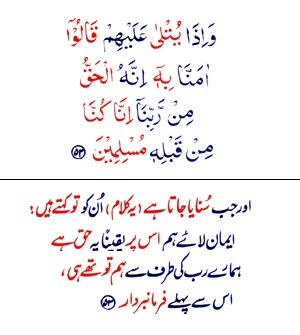 وَاِذَا يُتْلٰى عَلَيْهِمْ قَالُوْٓا
اٰمَنَّا بِهٖٓ اِنَّهُ الْحَقُّ
مِنْ رَّبِّنَآ اِنَّا كُنَّا
مِنْ قَبْلِهٖ مُسْلِمِيْنَ ﴿۵۳﴾
اور جب سُنایا جاتا ہے (یہ کلام) اُن کو تو کہتے ہیں:
ایمان لائے ہم اس پر یقیناً یہ حق ہے
ہمارے رب کی طرف سے ہم تو تھے ہی،
اس سے پہلے فرمانبردار ﴿۵۳﴾